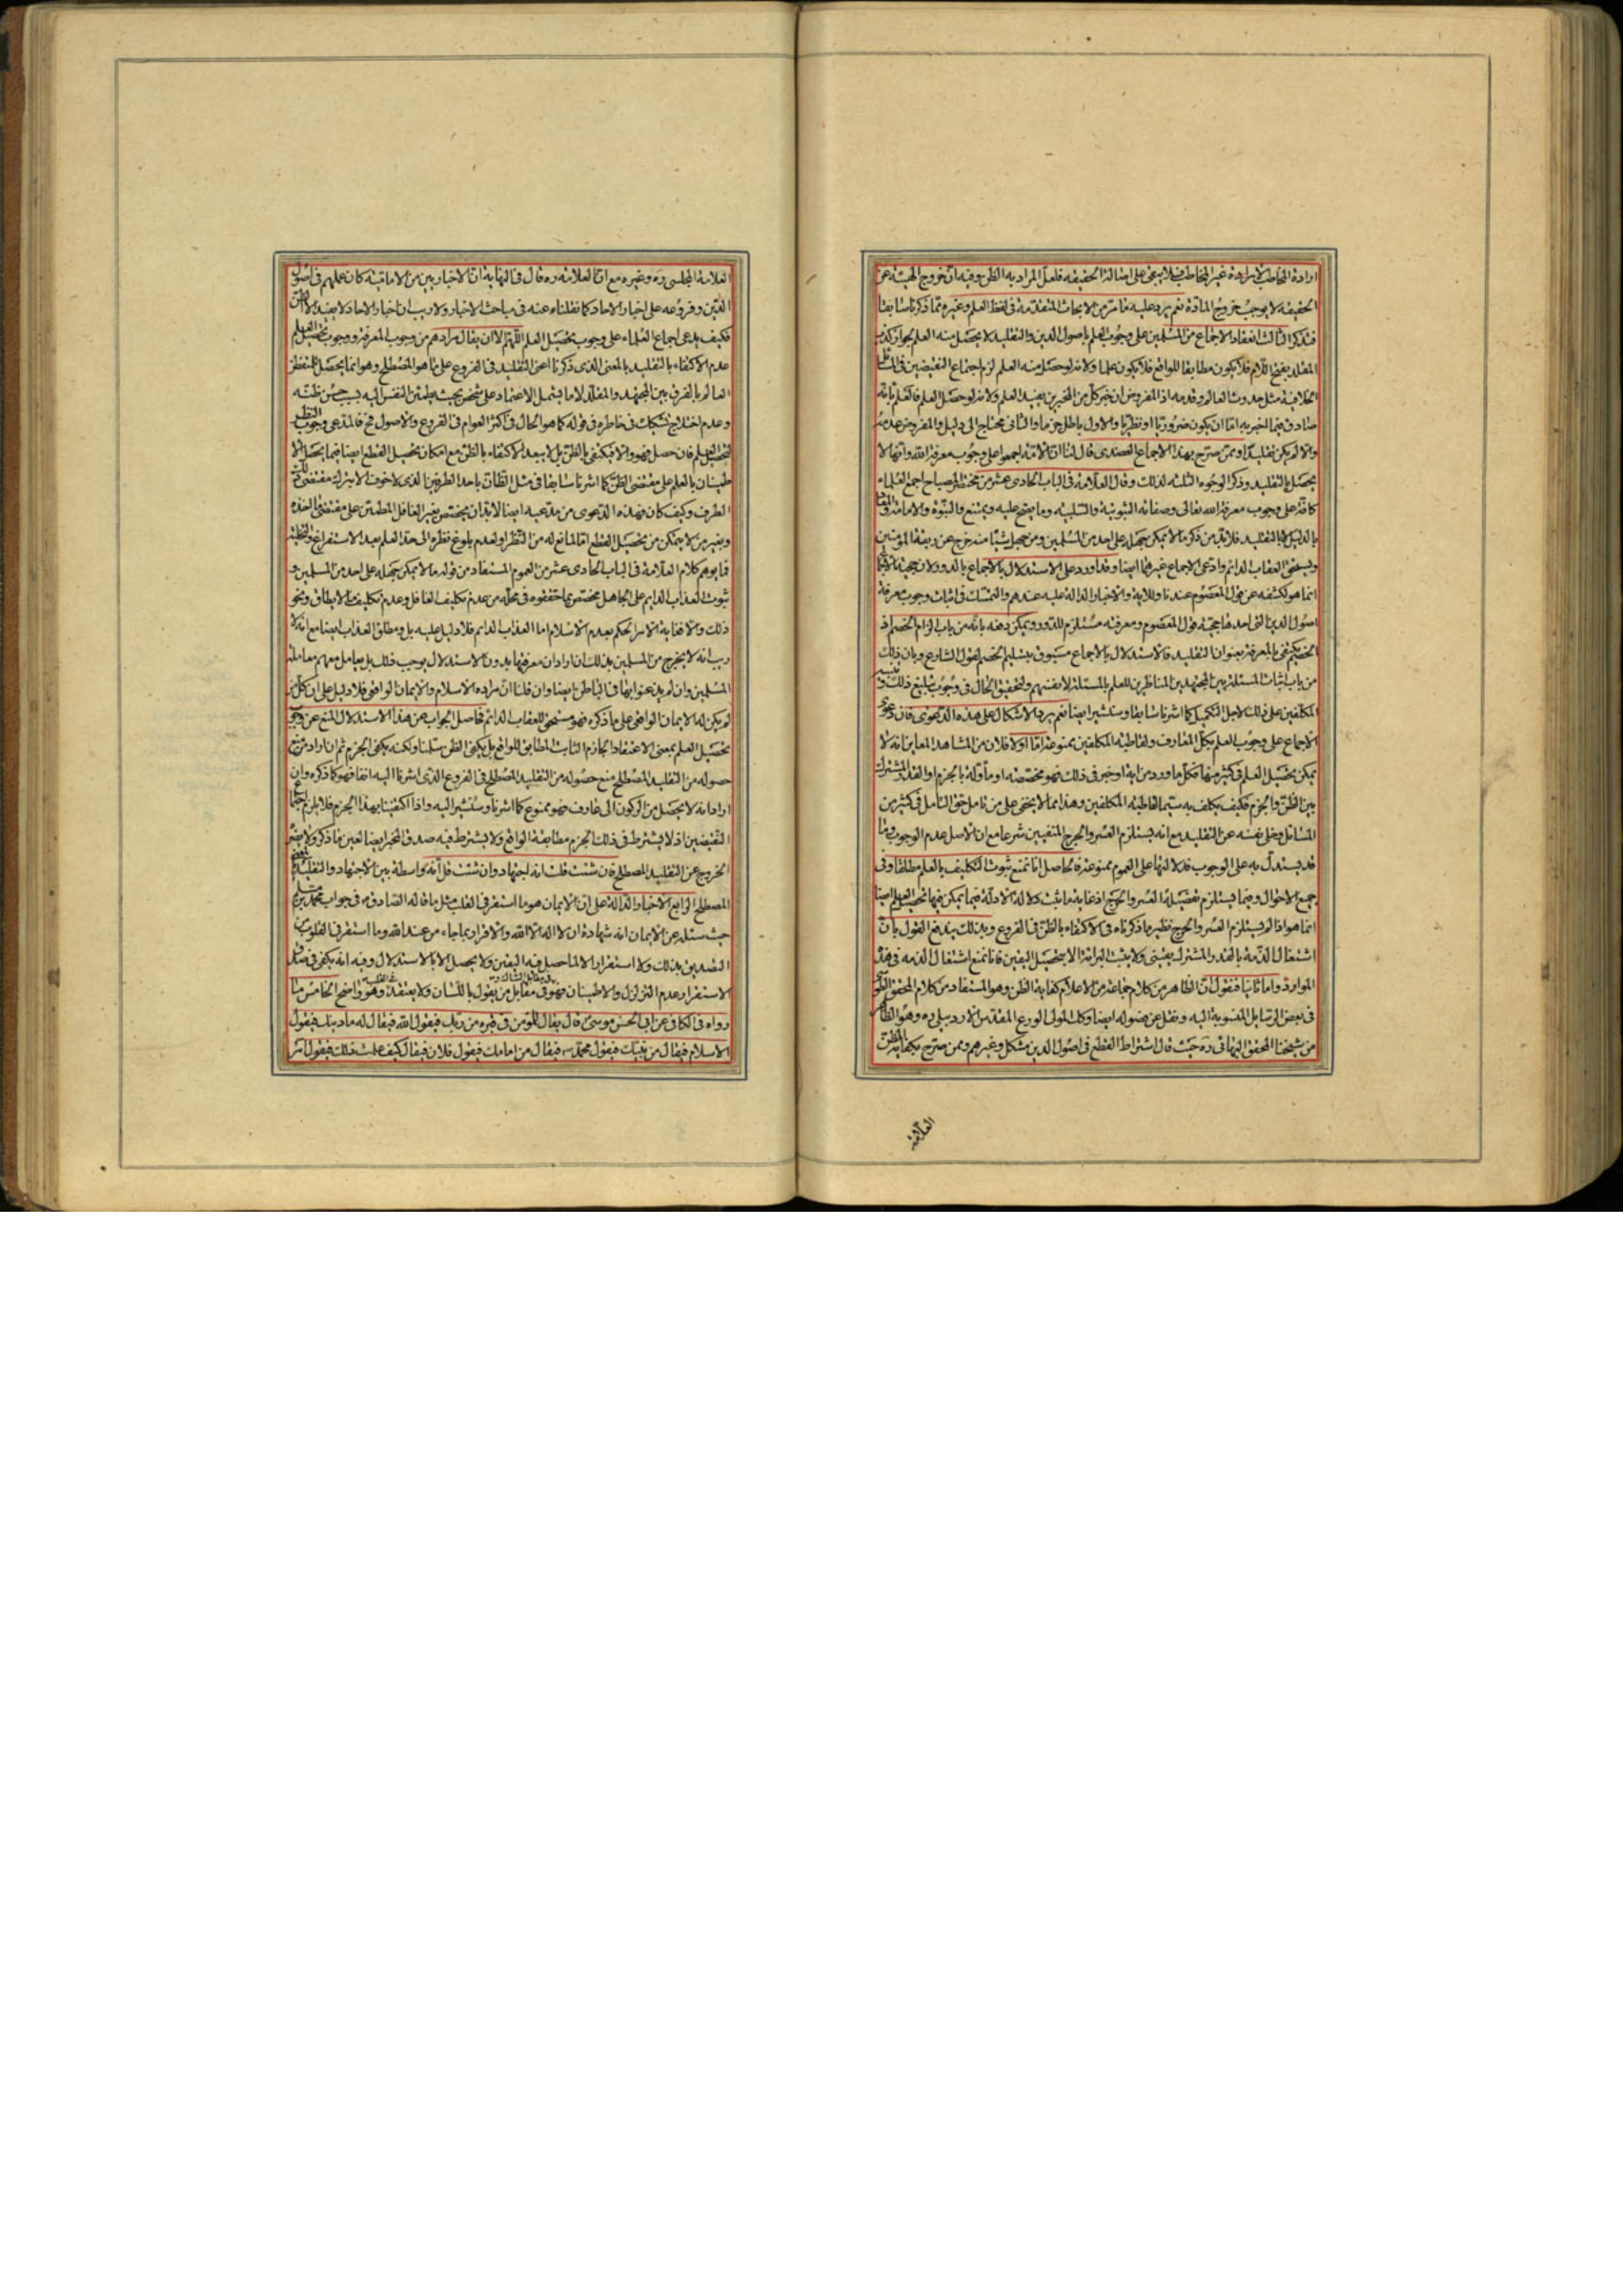 ارادة المخاطب لارادة غير المخاطب فلا يبقى على اصالة الحقيقه فلعل المراد به الظن وفيه ان خروج الهيئة عن
الحقيقه لا يوجب خروج المادة نعم يرد عليه ما مر من الابحاث المتقدمة فى لفظ العلم وغيره مما ذكرنا سابقا
فتذكر الثالث انعقاد الاجماع من المسلمين على وجوب العلم باصول الدين والتقليد لا يحصل منه العلم لجواز كذب
المقلد بفتح اللام فلا يكون مطابقا للواقع فلا يكون علما ولانه لو حصل منه العلم لزم اجتماع النقيضين فى المسائل
الخلافية مثل حدوث العالم وقدمه اذ المفروض ان خبر كل من المخبرين يفيد العلم ولانه لو حصل العلم فالعلم بانه
صادق فيما اخبر به اما ان يكون ضروريا او نظريا والاول باطل جزما والثانى محتاج الى دليل والمفروض عدمه
والا لم يكن تقليدا وممن صرح بهذا الاجماع العضدى قال لنا ان الامة اجمعوا على وجوب معرفة الله وانها لا
يحصل بالتقليد وذكر الوجوه الثلثه لذلك وقال العلامة فى الباب الحادى عشر من مختصر المصباح اجمع العلماء
كافة على وجوب معرفة الله تعالى وصفاته الثبوتية والسلبية وما يصح عليه ويمتنع والنبوة والامامة والمعاد
بالدليل لا بالتقليد فلا بد من ذكر ما لا يمكن جهله على احد من المسلمين ومن جهل شيئا منه خرج عن ربقة المؤمنين
ويستحق العقاب الدائم وادعى الاجماع غيرهما ايضا وقد اورد على الاستدلال بالاجماع بالدور لان حجية الاجماع
انما هو لكشفه عن قول المعصوم عندنا وللاية والاخبار الدالة عليه عندهم والتمسك فى اثبات وجوب معرفة
اصول الدين التى احدها حجية قول المعصوم ومعرفته مستلزم للدور ويمكن دفعه بانه من باب الزام الخصم اذ
الخصم يكتفى بالمعرفة بعنوان التقليد فالاستدلال بالاجماع مسبوق بتسليم الخصم لقول الشارع وبان ذلك
من باب اثبات المسئلة بين المجتهدين المناظرين للعلم بالمسئلة لانفسهم ولتحقيق الحال فى وجوب تبليغ ذلك وتنبيه
المكلفين على ذلك لاجل التكميل كما اشرنا سابقا وسنشير ايضا نعم يرد الاشكال على هذه الدعوى فان دعوى
الاجماع على وجوب العلم بكل المعارف ولقاطبة المكلفين ممنوعة اما اولا فلان من المشاهد المعاين انه لا
يمكن تحصيل العلم فى كثير منها فكل ما ورد من اية او خبر فى ذلك فهو مختص به او مأولة بالجزم او القدر المشترك
بين الظن والجزم فكيف يكلف به سيما قاطبة المكلفين وهذا مما لا يخفى على من تامل حق التامل فى كثير من
المسائل وخلى نفسه عن التقليد مع انه يستلزم العسر والحرج المنفيين شرعا مع ان الاصل عدم الوجوب وما
قد يستدل به على الوجوب فدلالتها على العموم ممنوعة فالحاصل انا نمنع ثبوت التكليف بالعلم مطلقا وفى
جميع الاحوال وفيما يستلزم تحصيله العسر والحرج اذ غاية ما ثبت دلالة الادلة فيما يمكن فيها تحصيل العلم ايضا
انما هو اذا لم يستلزم العسر والحرج نظير ما ذكرناه فى الاكتفاء بالظن فى الفروع وبذلك يندفع القول بان
اشتغال الذمة بالقدر المشترك يقينى ولا يثبت البرائة الا بتحصيل اليقين فانا نمنع اشتغال الذمه فى هذه
الموارد واما ثانيا فنقول ان الظاهر من كلام جماعة من الاعلام كفاية الظن وهو المستفاد من كلام المحقق الطوسى
فى بعض الرسايل المنسوبة اليه ونقل عن فصوله ايضا وكك المولى الورع المقدس الاردبيلى ره وهو الظاهر
من شيخنا المحقق البهائى ره حيث قال اشتراط القطع فى اصول الدين مشكل وغيرهم وممن صرح بكفاية الظن
العلامة
العلامة المجلسى ره وغيره مع ان العلامة ره قال فى النهاية ان الاخباريين من الامامية كان عملهم فى اصول
الدين وفروعه على اخبار الاحاد كما نقلناه عنه فى مباحث الاخبار ولا ريب ان اخبار الاحاد لا يفيد الا الظن
فكيف يدعى اجماع العلماء على وجوب تحصيل العلم اللهم الا ان يقال مرادهم من وجوب المعرفة ووجوب تحصيل العلم
عدم الاكتفاء بالتقليد بالمعنى الذى ذكرنا اعنى التقليد فى الفروع على ما هو المصطلح وهو انما يحصل للمتفطن
العالم بالفرق بين المجتهد والمقلد لا ما يشمل الاعتماد على شخص بحيث يطمئن النفس اليه بسبب حسن ظنه
وعدم اختلاج تشكيك فى خاطره فى قوله كما هو الحال فى اكثر العوام فى الفروع والاصول فح فالمدعى وجوب النظر
لتحصيل العلم فان حصل فهو والا فيكتفى بالظن بل لا يبعد الاكتفاء بالظن مع امكان تحصيل القطع ايضا فيما يحصل الا
طمينان بالعلم على مقتضى الظن كما اشرنا سابقا فى مثل الظان باحد الطرفين الذى لا خوف الا بترك مقتضى ذلك
الطرف وكيف كان فهذه الدعوى من مدعيه ايضا لابد ان يختص بغير الغافل المطمئن على مقتضى ما اخذه
وبغير من لا يتمكن من تحصيل القطع اما لمانع له من النظر او لعدم بلوغ نظره الى حد العلم بعد الاستفراغ والتخلية
فما يوهم كلام العلامة فى الباب الحادى عشر من العموم المستفاد من قوله ما لا يمكن جهله على احد من المسلمين و
ثبوت العذاب الدايم على الجاهل مختص بما حققوه فى محله من عدم تكليف الغافل وعدم تكليف ما لا يطاق ونحو
ذلك والا فغاية الامر الحكم بعدم الاسلام اما العذاب الدائم فلا دليل عليه بل ومطلق العذاب ايضا مع انه لا
ريب انه لا يخرج من المسلمين بذلك ان اراد ان معرفتها بدون الاستدلال يوجب ذلك بل يعامل معهم معاملة
المسلمين وان لم يذعنوا بها فى الباطن ايضا وان قلنا ان مراده الاسلام والايمان الواقعى فلا دليل على ان كل من
لم يكن له الايمان الواقعى على ما ذكره فهو مستحق للعقاب الدائم فحاصل الجواب عن هذا الاستدلال المنع عن وجوب
تحصيل العلم بمعنى الاعتقاد الجازم الثابت المطابق للواقع بل يكفى الظن سلمنا ولكنه يكفى الجزم ثم ان اراد من منع
حصوله من التقليد المصطلح منع حصوله من التقليد المصطلح فى الفروع الذى اشرنا اليه انفا فهو كما ذكره وان
اراد انه لا يحصل من الركون الى عارف فهو ممنوع كما اشرنا وسنشير اليه واذا اكتفينا بهذا الجزم فلا يلزم اجتماع
النقيضين اذ لا يشترط فى ذلك الجزم مطابقة الواقع ولا يشترط فيه صدق المخبر ايضا لعين ما ذكر ولا يضر
الخروج عن التقليد المصطلح فان شئت قلت انه اجتهاد وان شئت قل انه واسطة بين الاجتهاد والتقليد
المصطلح الرابع الاخبار الدالة على ان الايمان هو ما استقر فى القلب مثل ما قاله الصادق ع فى جواب محمد بن مسلم
حيث سئله عن الايمان انه شهادة ان لا اله الا الله والاقرار بما جاء من عند الله وما استقر فى القلوب
التصديق بذلك ولا استقرار الا لما حصل فيه اليقين ولا يحصل الا بالاستدلال وفيه انه يكفى فى صدق
الاستقرار وعدم التزلزل والاطمينان فهو فى مقابل من يقول باللسان ولا يعتقد وهو واضح الخامس ما
رواه فى الكافى عن ابى الحسن موسى ع قال يقال للمؤمن فى قبره من ربك فيقول الله فيقال له ما دينك فيقول
الاسلام فيقال من نبيك فيقول محمد ص فيقال من امامك فيقول فلان فيقال كيف علمت ذلك فيقول امر